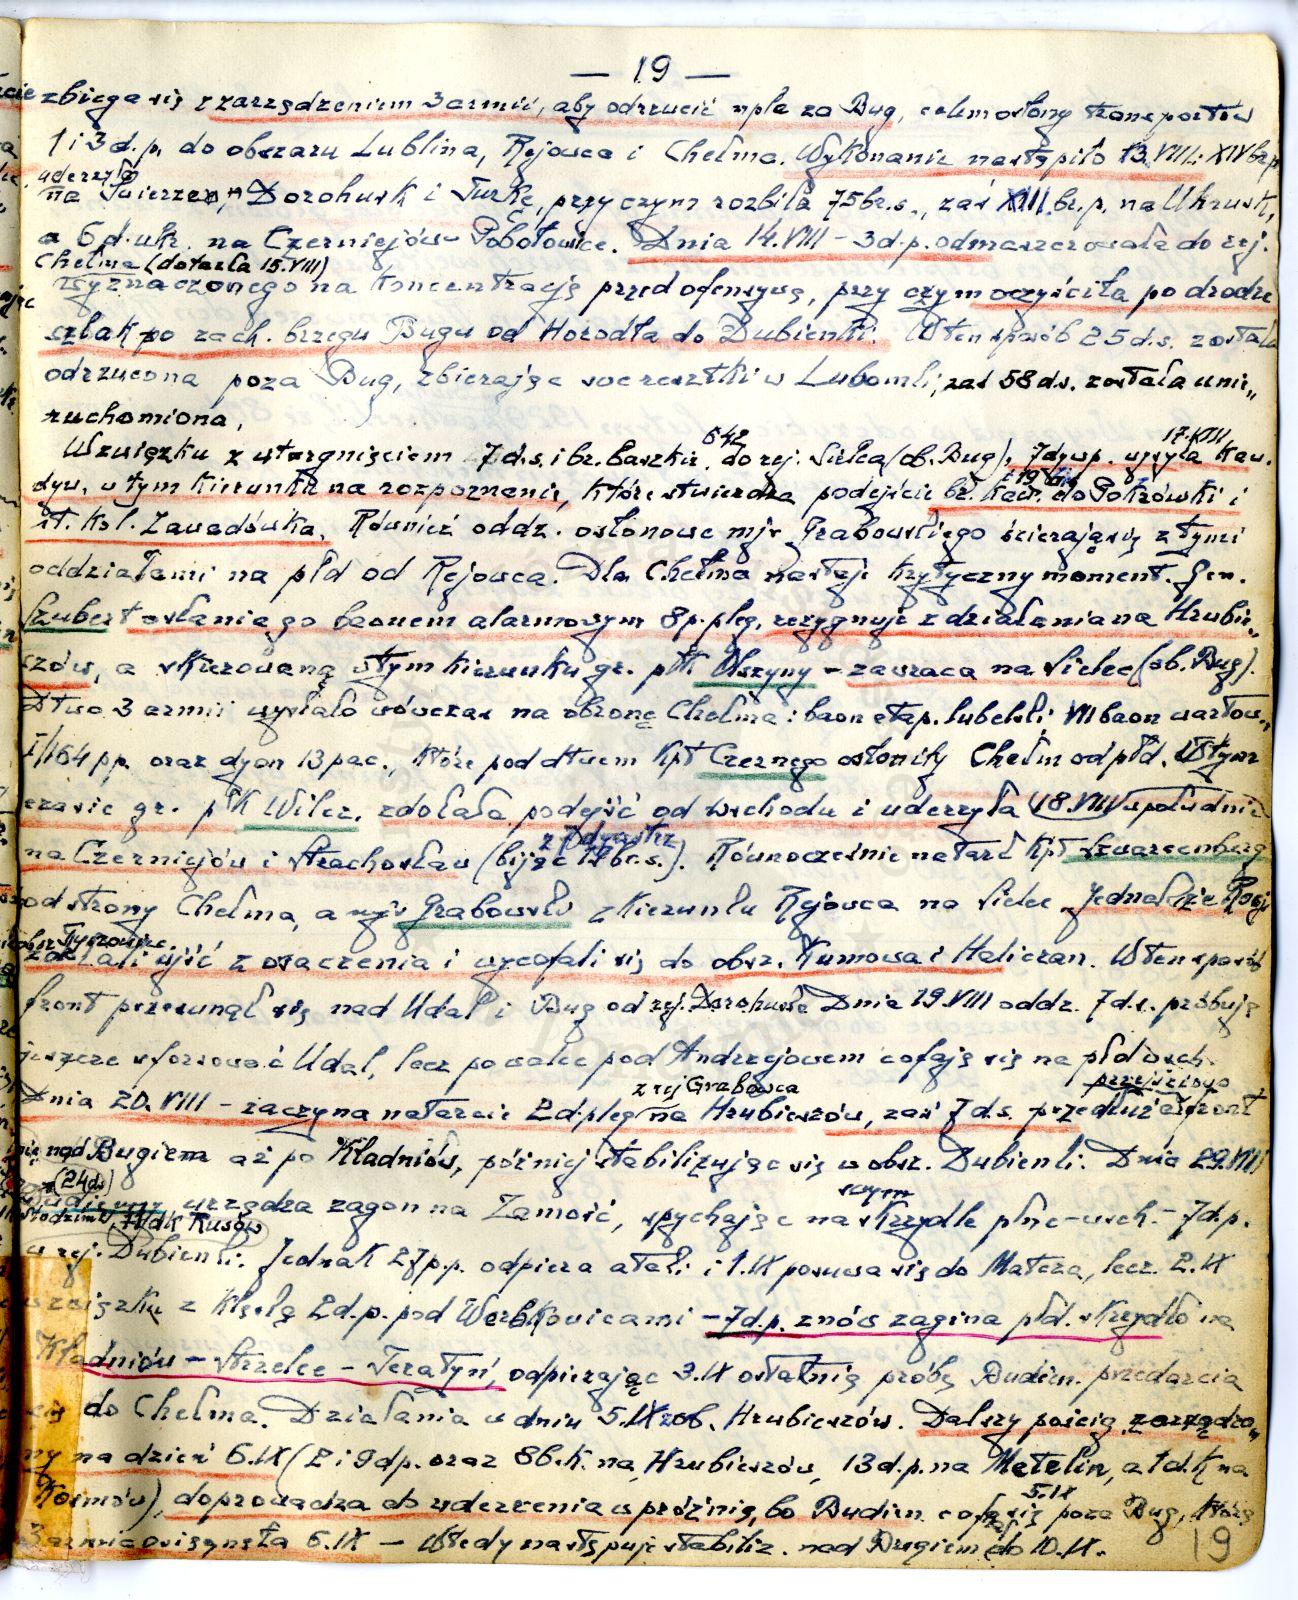 — 19 —
zbiega się z zarządzeniem 3 armii, aby odrzucić npla za Bug, celem osłony transportów
1 i 3 d.p. do obszaru Lublina, Rejowca i Chełma. Wykonanie nastąpiło 13.VIII: XIV br.p.
uderzyła
na Świerże, Dorohusk i Turkę, przy czym rozbiła 75 br.s., zaś XIII br.p. na Uhrusk,
a 6 d.ukr. na Czerniejów - Pobołowice. Dnia 14.VIII – 3 d.p. odmaszerowała do rej.
Chełma (dotarła 15.VIII)
wyznaczonego na koncentrację przed ofensywą, przy czym oczyściła po drodze
szlak po zach. brzegu Bugu od Horodła do Dubienki. W ten sposób 25 d.s. została
odrzucona poza Bug, zbierając swe resztki w Lubomli, zaś 58 d.s. została unie„
ruchomiona.
W związku z wtargnięciem 7 d.s. i br. baszkir. do rej. Sielca (ob. Bug), 7 dyw p. wysyła kaw.
dyw. w tym kierunku na rozpoznanie, które stwierdza podejście br. kaw. do Pokrówki i
st. kol. Zawadówka. Również oddz. osłonowe mjr Grabowskiego ścierają się z tymi
oddziałami na płd od Rejowca. Dla Chełma nastaje krytyczny moment. Gen.
Szubert osłania go baonem alarmowym 8 p.p.leg, rezygnuje z działania na Hrubie„
szów, a skierowaną w tym kierunku gr. płk. Olszyny – zawraca na Sielec (ob. Bug).
Dtwo 3 armii wysłało wówczas na obronę Chełma: baon etap. lubelski, VII baon wartow.,
I/164 pp. oraz dyon 13 pac., które pod dtwem kpt Czernego osłoniły Chełm od płd. W tym
czasie gr. płk Wilcz. zdołała podejść od wschodu i uderzyła (18.VIII w południe)
na Czerniejów i Strachosław (bijąc br.s.). Równocześnie natarł kpt Szwarcenberg
od strony Chełma, a mjr Grabowski z kierunku Rejowca na Sielec. Jednakże Rosj.
zdołali ujść z osaczenia i wycofali się do obsz. Kumowa i Haliczan. W ten sposób
front przesunął się nad Udal i Bug od rej. Dorohuska. Dnia 19.VIII oddz. 7 d.s. próbuje
jeszcze sforsować Udal, lecz po walce pod Andrzejowem cofają się na płd wsch.
z rej Grabowca przejściowo
Dnia 20.VIII – zaczyna natarcie 2 d.p.leg na Hrubieszów, zaś 7 d.s. przedłuża front
nad Bugiem aż po Kładniów, później stabilizując się w obsz. Dubienki. Dnia 29.VIII
(24 ds)
urządza zagon na Zamość, spychając na swym skrzydle płnc-wsch. – 7 d.p.
w rej. Dubienki. Jednak 27 p.p. odpiera ataki i 1.IX posuwa się do Matcza, lecz 2.IX
w związku z klęską 2 d.p. pod Werbkowicami – 7 d.p. znów zagina płd. skrzydło na
Kładniów – Strzelce – Teratyń, odpierając 3.IX ostatnią próbę Budien. przedarcia
się do Chełma. Działania w dniu 5.IX zob. Hrubieszów. Dalszy pościg, zarządzo„
ny na dzień 6.IX (2 i 9 dp. oraz 8 b.k. na Hrubieszów, 13 d.p. na Metelin, a 1 d.k na
Kosmów), doprowadza do uderzenia w próżnię, bo Budien. cofa się 5.IX poza Bug, którą
3 armia osiągnęła 6.IX — Wtedy następuje stabiliz. nad Bugiem do 10.IX.
19